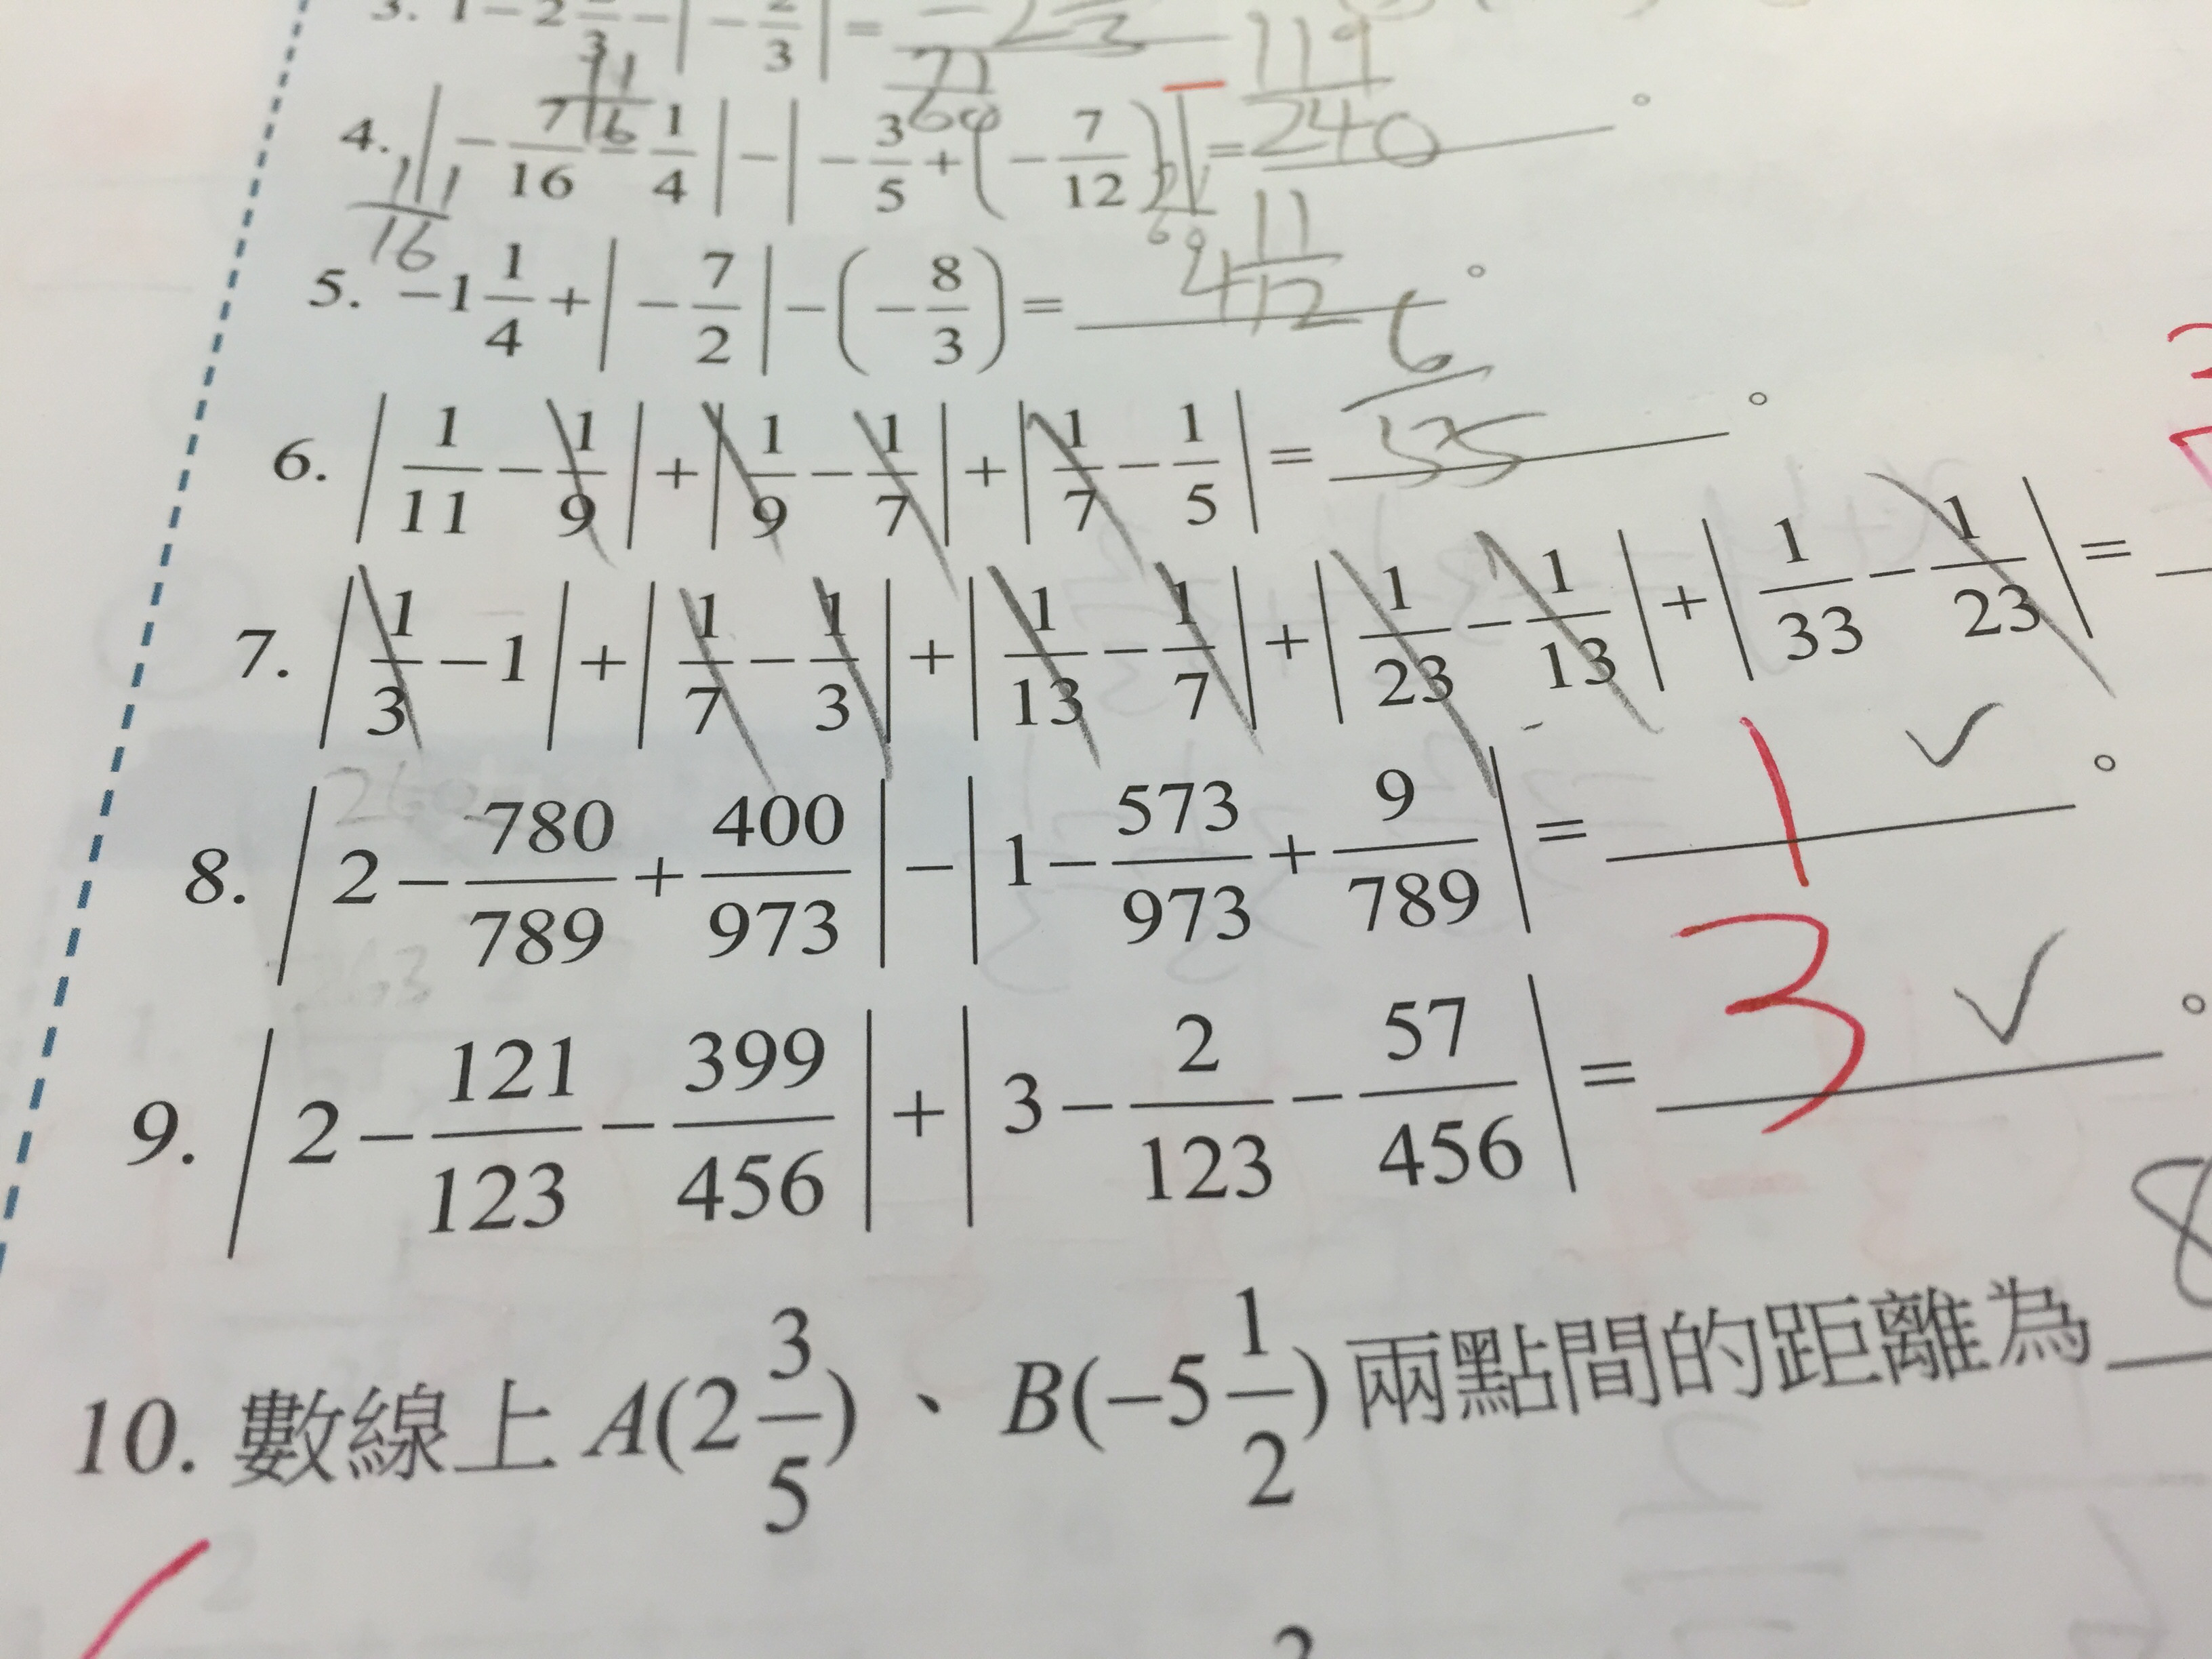 3. 1 − 2 − | − 2/3 | = −2
4. | − 7/16 − 1/4 | − | − 3/5 + ( − 7/12 ) | = − 119/240 。
11/16 71/60
5. −1 1/4 + | − 7/2 | − ( − 8/3 ) = 4 11/12 。
6. | 1/11 − 1/9 | + | 1/9 − 1/7 | + | 1/7 − 1/5 | = 6/55 。
7. | 1/3 − 1 | + | 1/7 − 1/3 | + | 1/13 − 1/7 | + | 1/23 − 1/13 | + | 1/33 − 1/23 | =
8. | 2 − 780/789 + 400/973 | − | 1 − 573/973 + 9/789 | = 1 ✓ 。
9. | 2 − 121/123 − 399/456 | + | 3 − 2/123 − 57/456 | = 3 ✓ 。
10. 數線上 A(2 3/5) 、 B(−5 1/2) 兩點間的距離為 8